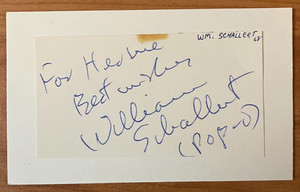 WM. SCHALLERT
For Herbie
Best wishes
(William
Schallert
(POP-O)